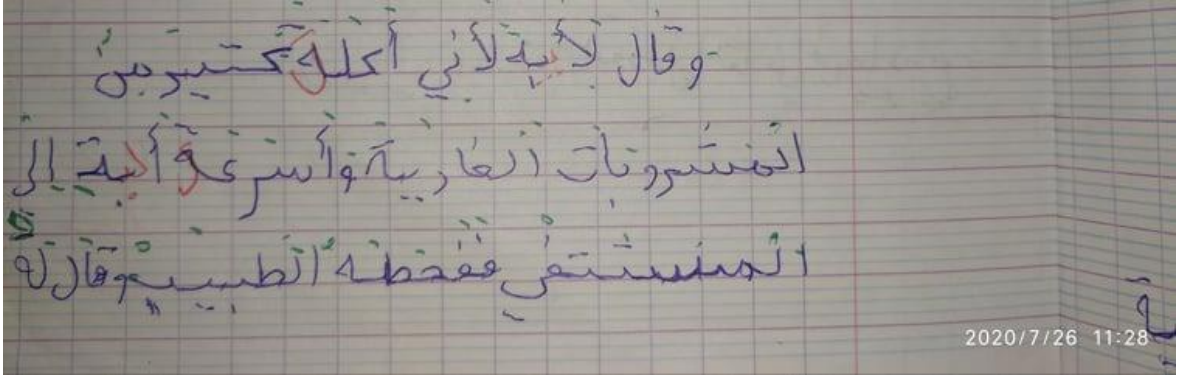 وقال لأبية لأني أكلة كتير من
المشروبات الغارية وأسرعة أبية إلى
المستشفى ففحصه الطبيب وقال له
2020/7/26 11:28